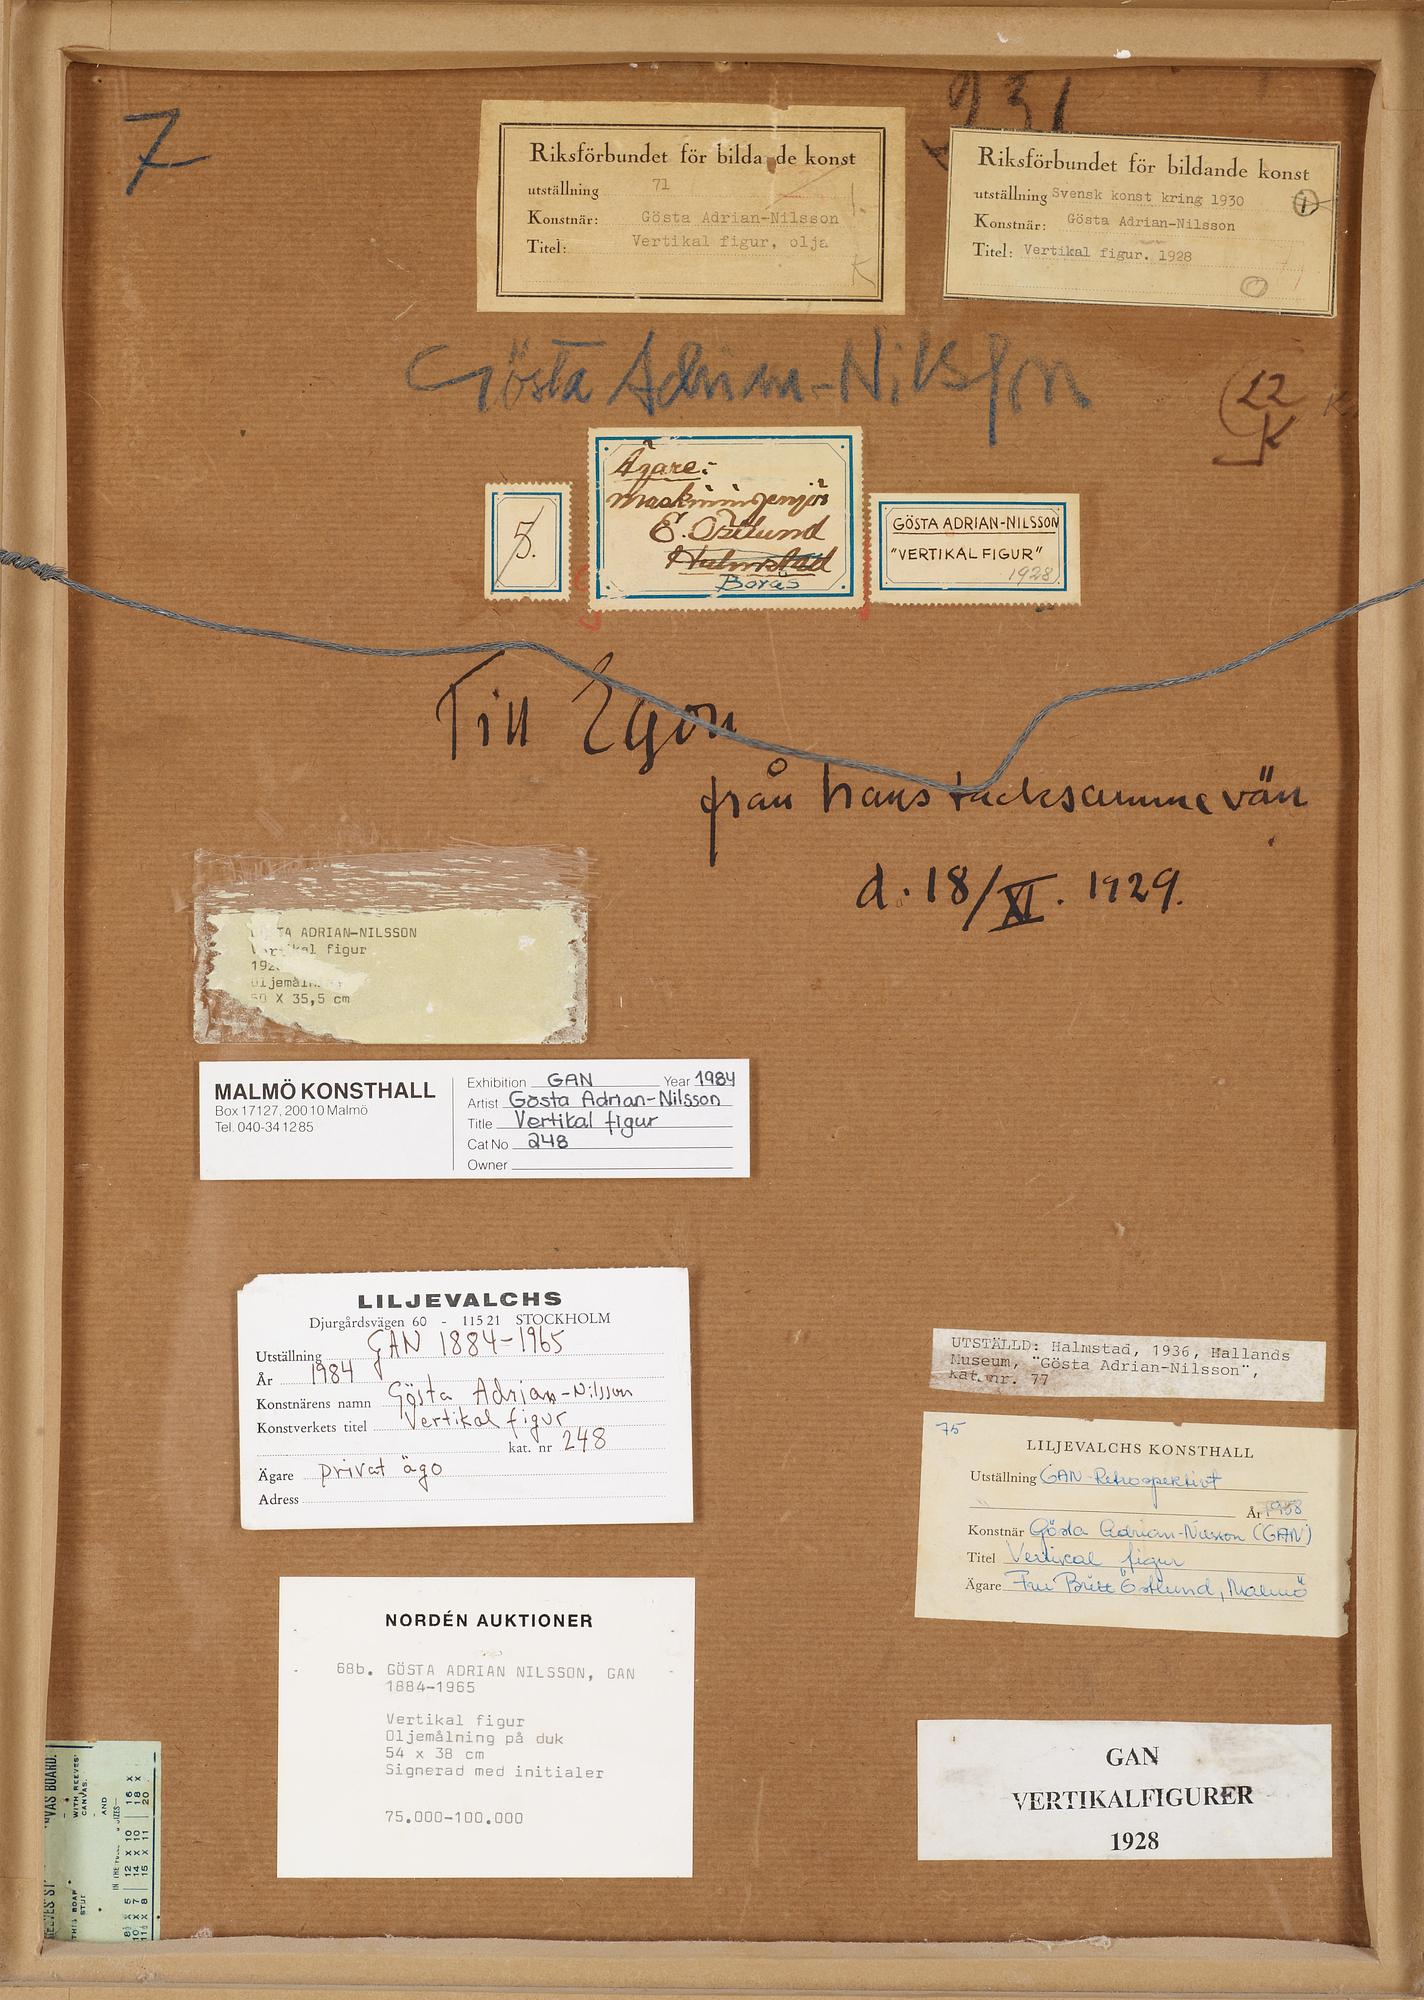 7
931
Riksförbundet för bildande konst
utställning 71
Konstnär: Gösta Adrian-Nilsson
Titel: Vertikal figur, olja
K
Riksförbundet för bildande konst
utställning Svensk konst kring 1930
Konstnär: Gösta Adrian-Nilsson
Titel: Vertikal figur. 1928
Gösta Adrian-Nilsson
22
K
5.
Ägare:
maskiningenjör
E. Östlund
Halmstad
Borås
GÖSTA ADRIAN-NILSSON
"VERTIKAL FIGUR"
1928
Till Egon
från hans tacksamme vän
d. 18/XI. 1929.
ADRIAN-NILSSON
figur
X 35,5 cm
MALMÖ KONSTHALL
Box 17127, 200 10 Malmö
Tel. 040-34 12 85
Exhibition GAN Year 1984
Artist Gösta Adrian-Nilsson
Title Vertikal figur
Cat No 248
Owner
LILJEVALCHS
Djurgårdsvägen 60 - 115 21 STOCKHOLM
Utställning GAN 1884-1965
År 1984
Konstnärens namn Gösta Adrian-Nilsson
Konstverkets titel Vertikal figur
kat. nr 248
Ägare privat ägo
Adress
UTSTÄLLD: Halmstad, 1936, Hallands
Museum, "Gösta Adrian-Nilsson",
kat.nr. 77
75
LILJEVALCHS KONSTHALL
Utställning GAN-Retrospektivt
År 1958
Konstnär Gösta Adrian-Nilsson (GAN)
Titel Vertikal figur
Ägare Fru Britt Östlund, Malmö
NORDÉN AUKTIONER
68b. GÖSTA ADRIAN NILSSON, GAN
1884-1965
Vertikal figur
Oljemålning på duk
54 x 38 cm
Signerad med initialer
75.000-100.000
GAN
VERTIKALFIGURER
1928
BOARD.
WITH REEVES'
CANVAS.
AND
12 X 10 16 X
14 X 10 18 X
15 X 11 20 X